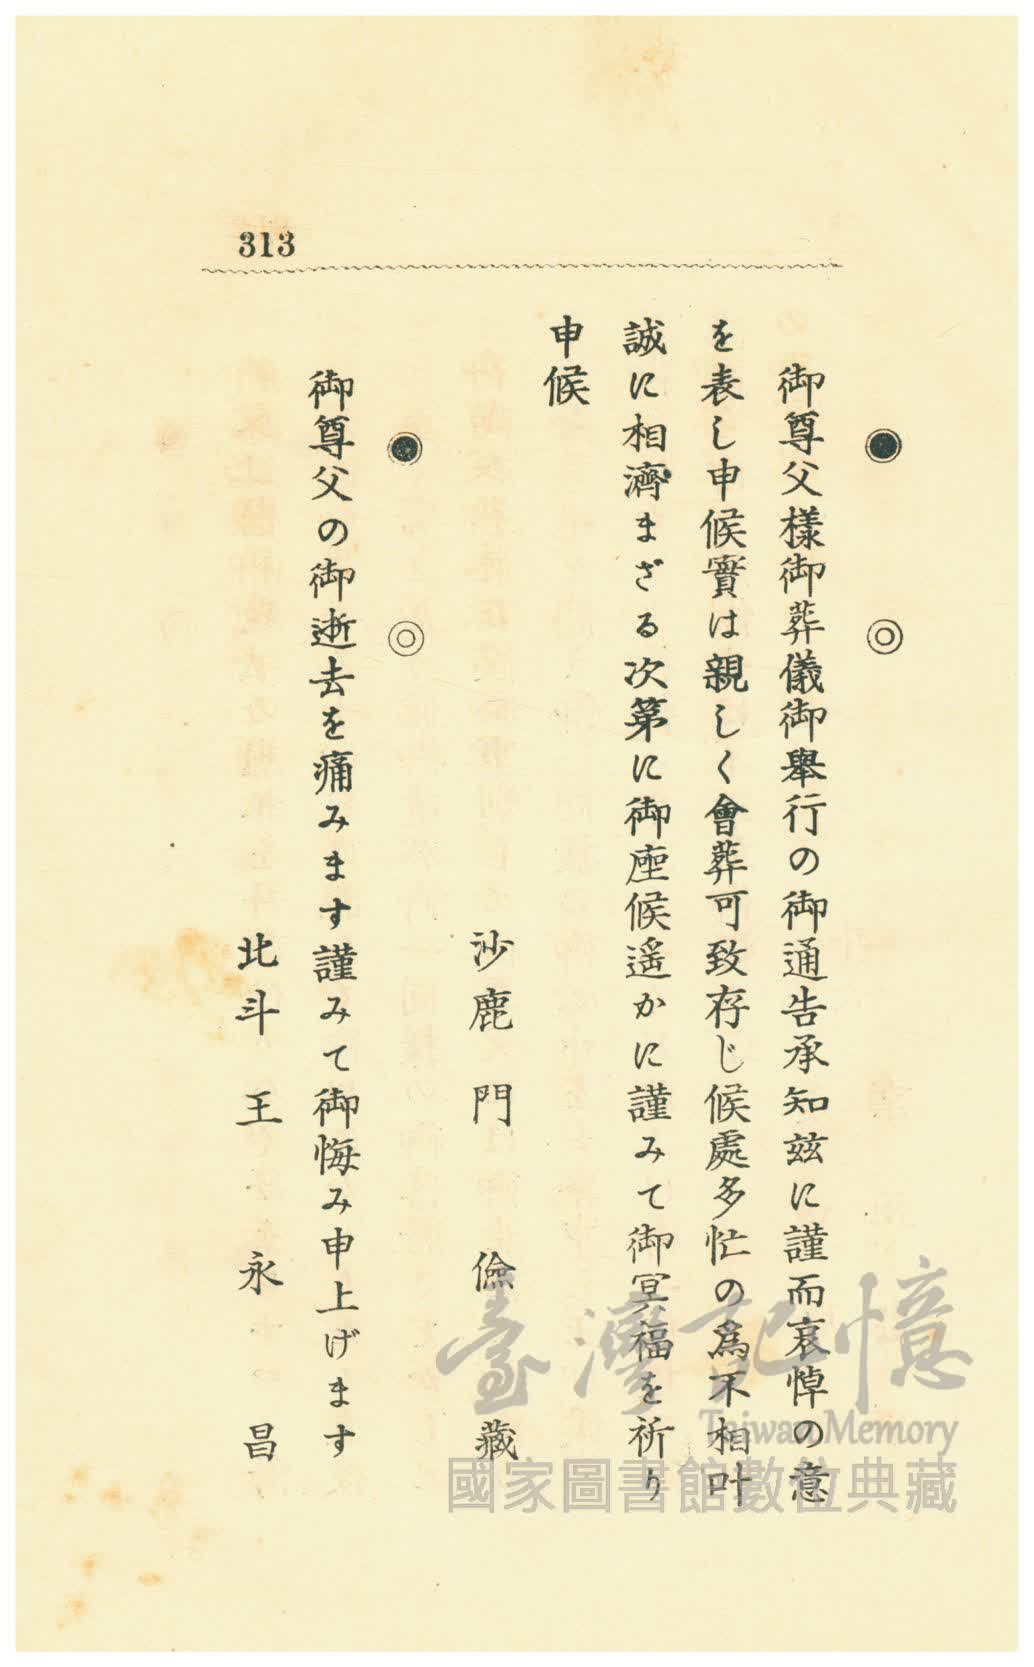 313
◉ ◎
御尊父樣御葬儀御舉行の御通告承知玆に謹而哀悼の意
を表し申候實は親しく會葬可致存じ候處多忙の爲不相叶
誠に相濟まざる次第に御座候遙かに謹みて御冥福を祈り
申候
沙鹿 門 儉藏
◉ ◎
御尊父の御逝去を痛みます謹みて御悔み申上げます
北斗 王永昌
臺灣記憶
Taiwan Memory
國家圖書館數位典藏